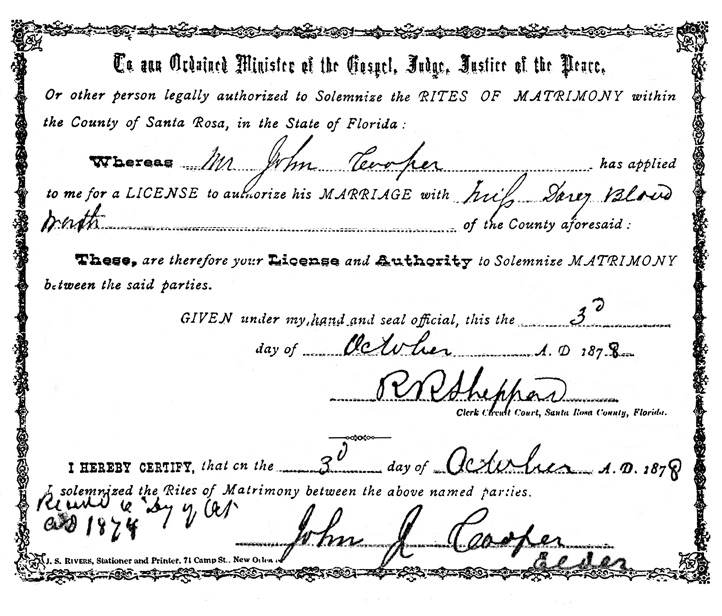 To any Ordained Minister of the Gospel, Judge, Justice of the Peace,
Or other person legally authorized to Solemnize the RITES OF MATRIMONY within
the County of Santa Rosa, in the State of Florida:
Whereas Mr John Cooper has applied
to me for a LICENSE to authorize his MARRIAGE with Miss Darcy Blood
worth of the County aforesaid:
These, are therefore your License and Authority to Solemnize MATRIMONY
between the said parties.
GIVEN under my hand and seal official, this the 3d
day of October A. D 1878
R R Sheppard
Clerk Circuit Court, Santa Rosa County, Florida.
I HEREBY CERTIFY, that on the 3d day of October A. D. 1878
I solemnized the Rites of Matrimony between the above named parties.
AD 1878
John J Cooper
Elder
J. S. RIVERS, Stationer and Printer, 74 Camp St., New Orleans